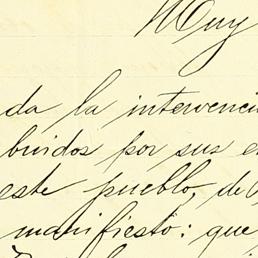 Muy
da la intervenci
buidos por sus e
este pueblo, de
manifiesto: que